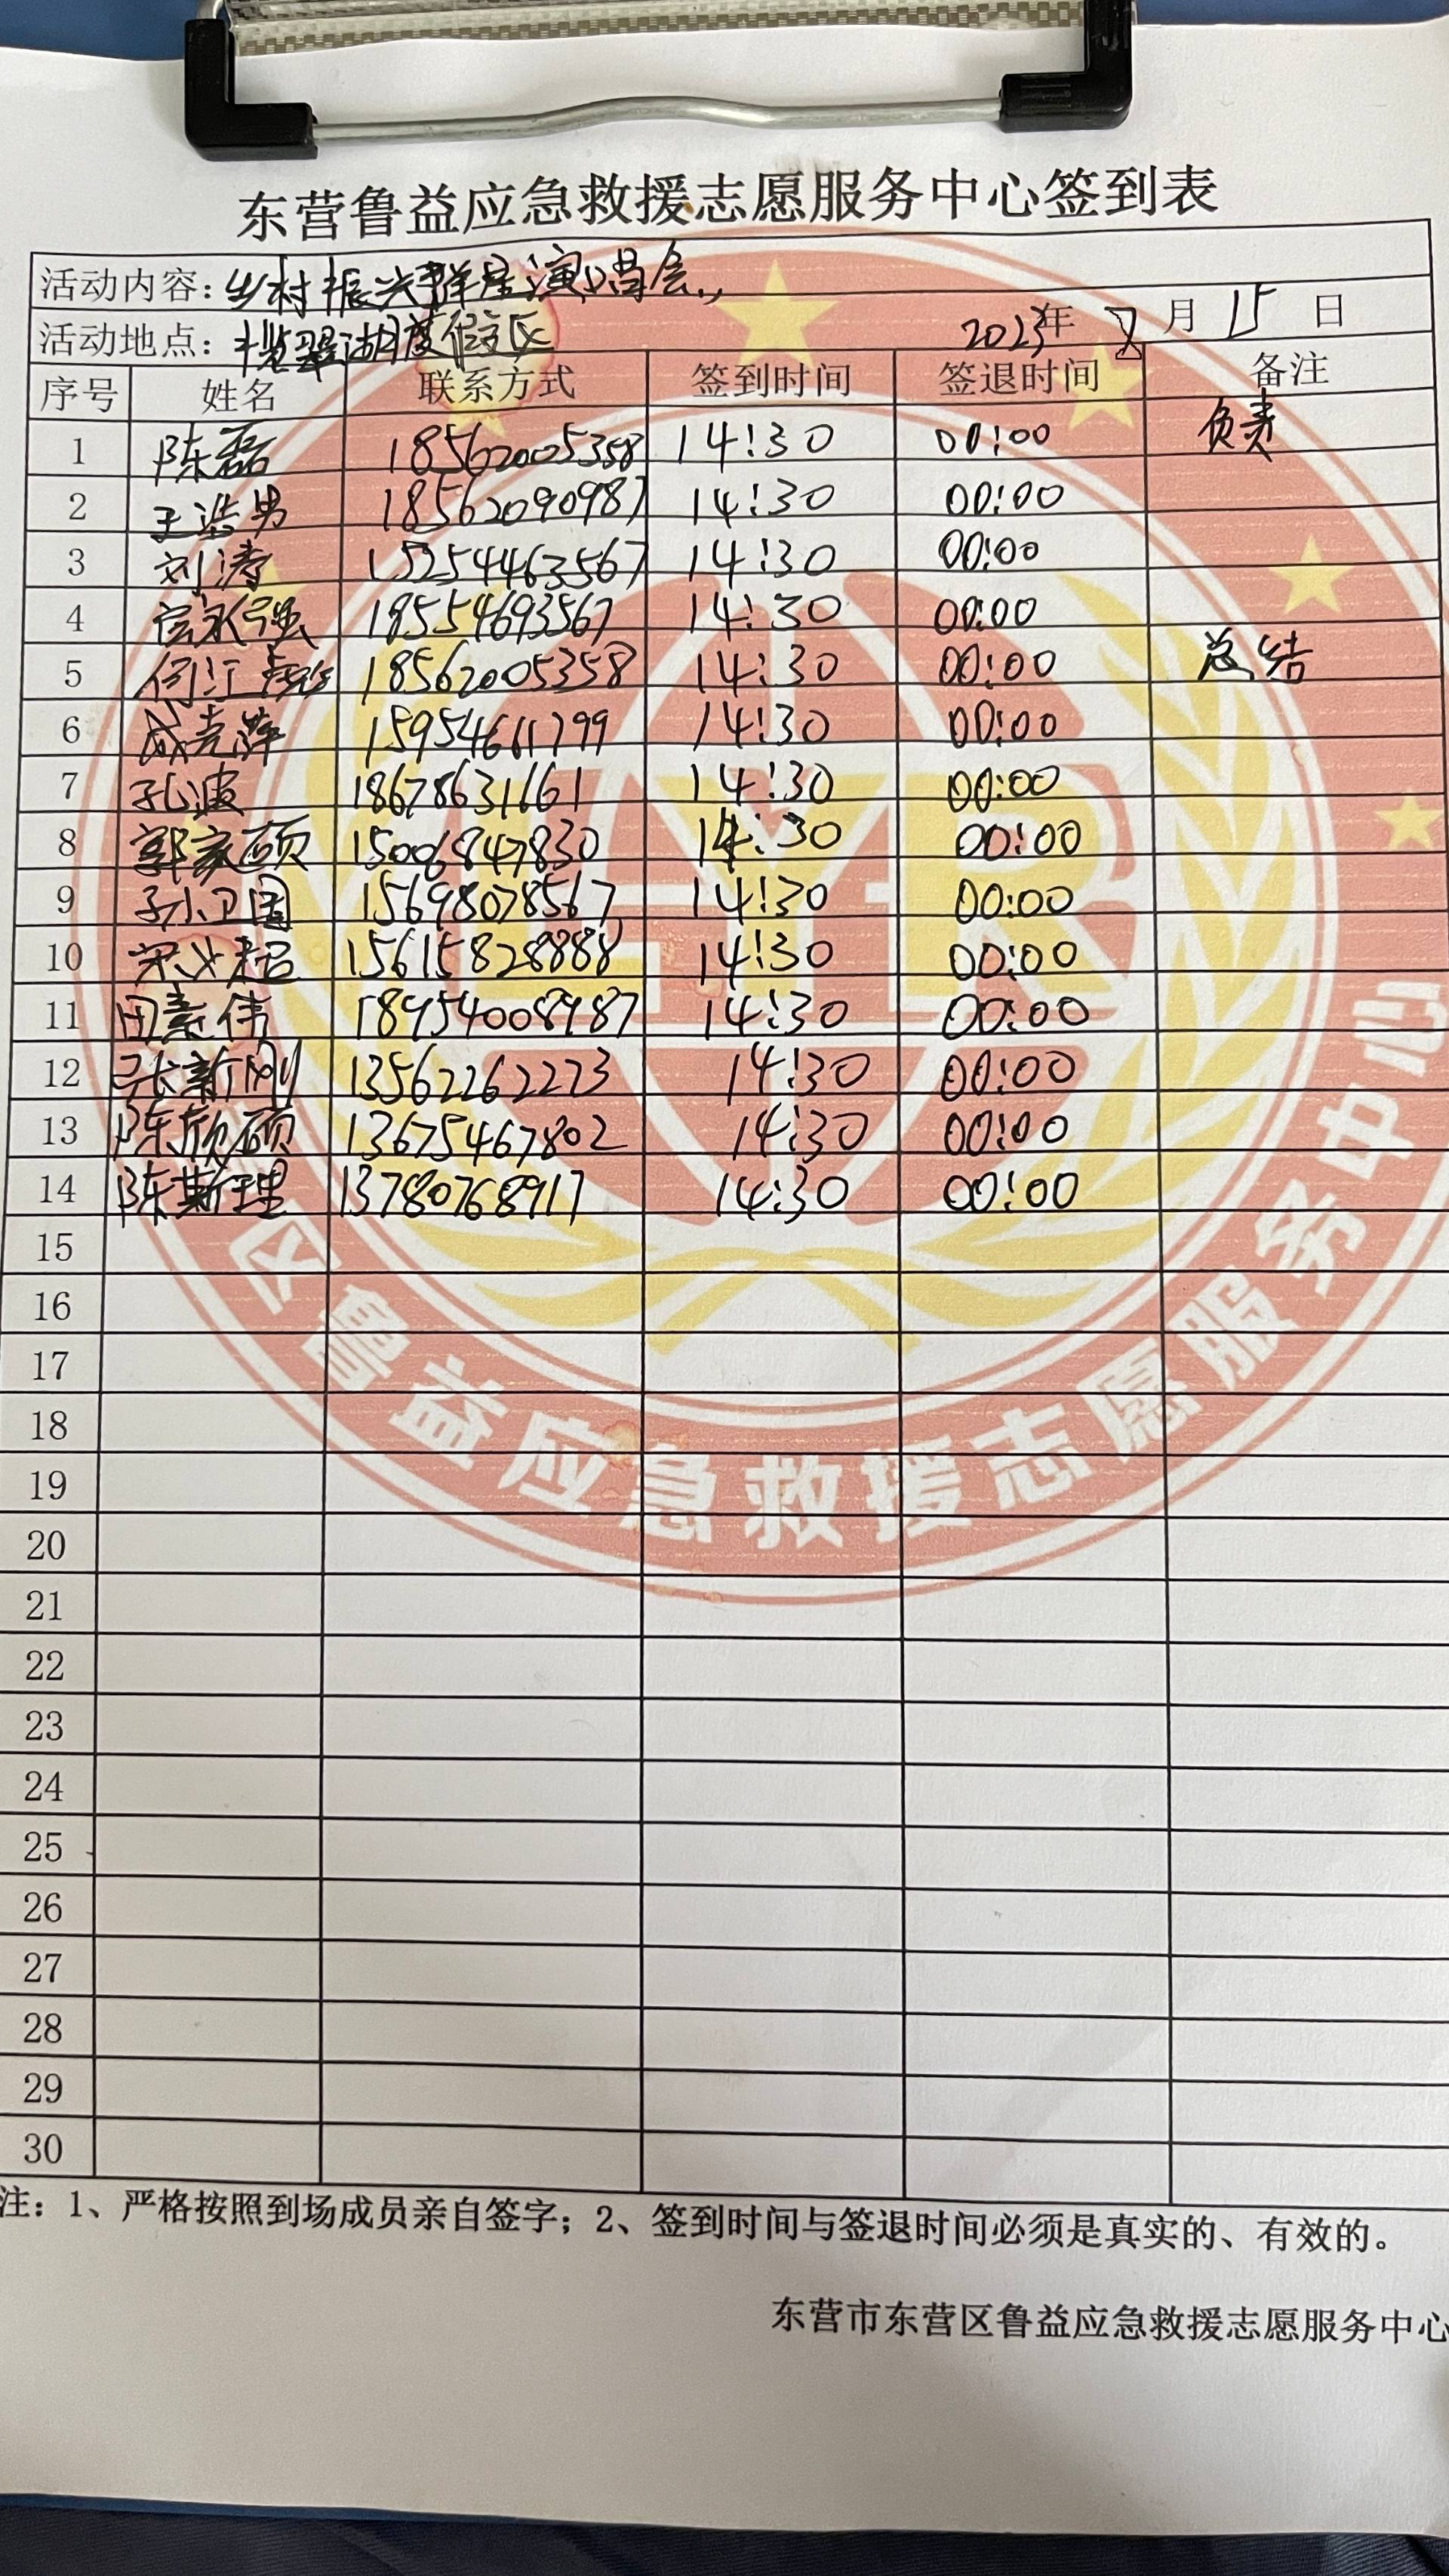 东营鲁益应急救援志愿服务中心签到表
活动内容：乡村振兴群星演唱会
活动地点：揽翠湖度假区 2023年 月 15 日
序号 姓名 联系方式 签到时间 签退时间 备注
1 陈磊 18562005358 14:30 00:00 负责
2 王浩男 18562090987 14:30 00:00
3 刘涛 15254463567 14:30 00:00
4 永强 18554693567 14:30 00:00
5 何江 18562005358 14:30 00:00 总结
6 15954661799 14:30 00:00
7 孔波 18678631661 14:30 00:00
8 郭家硕 15006847830 14:30 00:00
9 孙卫国 15698078567 14:30 00:00
10 宋义超 15615828888 14:30 00:00
11 田素伟 18954008987 14:30 00:00
12 张新刚 13562262223 14:30 00:00
13 陈欣硕 13675467802 14:30 00:00
14 陈斯理 13780768917 14:30 00:00
15
16
17
18
19
20
21
22
23
24
25
26
27
28
29
30
区鲁益应急救援志愿服务中心
注：1、严格按照到场成员亲自签字；2、签到时间与签退时间必须是真实的、有效的。
东营市东营区鲁益应急救援志愿服务中心